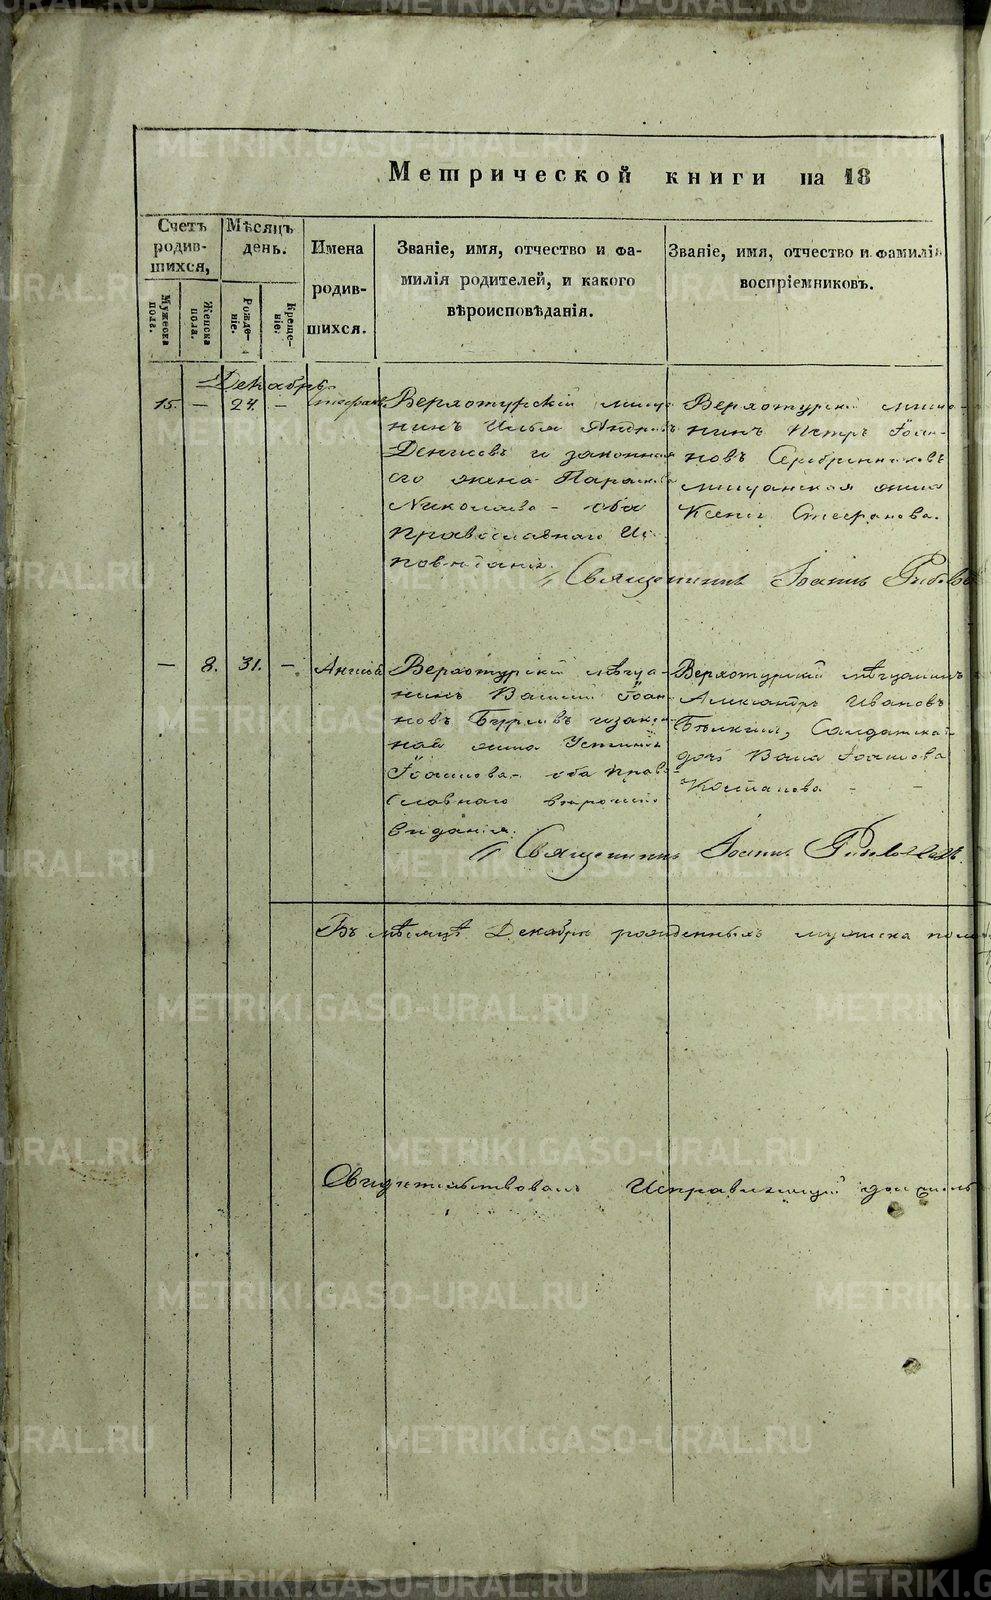 Метрической книги на 18
Счетъ родив-шихся,
Мужеска пола.
Женска пола.
Мѣсяцъ день.
Рожде-ніе.
Креще-ніе.
Имена родив-шихся.
Званіе, имя, отчество и фа-
милія родителей, и какого
вѣроисповѣданія.
Званіе, имя, отчество и фамилія
воспріемниковъ.
Декабрь
15. — 24. —
Верхотурскій мѣща
нинъ Илья Андреевъ
Денисевъ и законная
его жена Параскева
Николаева - оба
православнаго Ис
повѣданія.
Верхотурскій мѣща-
нинъ Петръ Іоан-
новъ Серебренниковъ
мѣщанская жена
Стефанова.
Священникъ Іоаннъ
— 8. 31. —
Верхотурскій мѣща
нинъ Василій Іоан
новъ и закон
ная жена Устинья
Іоаннова - оба прав
славнаго вѣроиспо
виданія.
Верхотурскій мѣщанинъ
Александръ Ивановъ
Солдатская
дочь Іоаннова
Священникъ Іоаннъ
Въ мѣсяцѣ Декабрѣ рожденныхъ мужеска пола
Свидѣтельствовалъ Исправляющій должность
METRIKI.GASO-URAL.RU